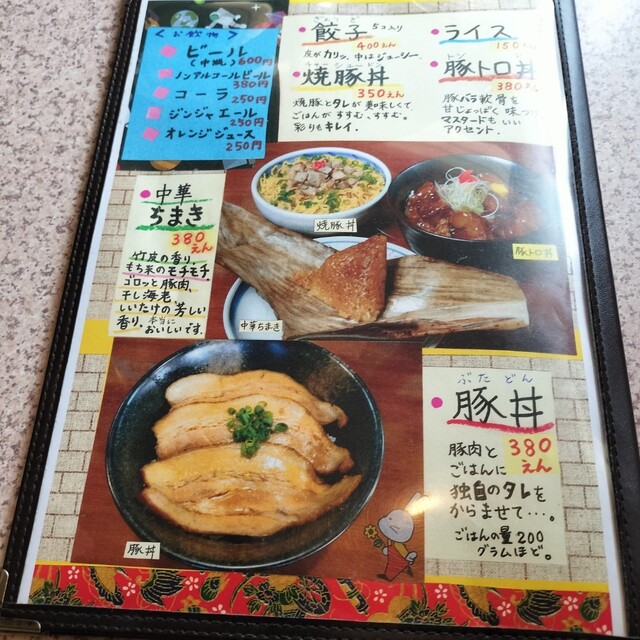 ＜お飲物＞
ビール
(中瓶) 600円
ノンアルコールビール
380円
コーラ
250円
ジンジャエール
250円
オレンジジュース
250円
ぎょうざ
餃子 5コ入り
400えん
皮がカリッ、中はジューシー。
焼豚丼
350えん
焼豚とタレが美味しくて
ごはんがすすむ、すすむ。
彩りもキレイ。
ライス
150
トン
豚トロ丼
380
豚バラ軟骨を
甘じょっぱく味つ
マスタードもいい
アクセント.
中華
ちまき
380
えん
竹皮の香り、
もち米のモチモチ
ゴロッと豚肉、
干し海老、
しいたけの芳しい
香り、本当に
おいしいです。
焼豚丼
豚トロ丼
中華ちまき
ぶたどん
豚丼
380
えん
豚肉と
ごはんに
独自のタレを
からませて…。
ごはんの量200
グラムほど。
豚丼